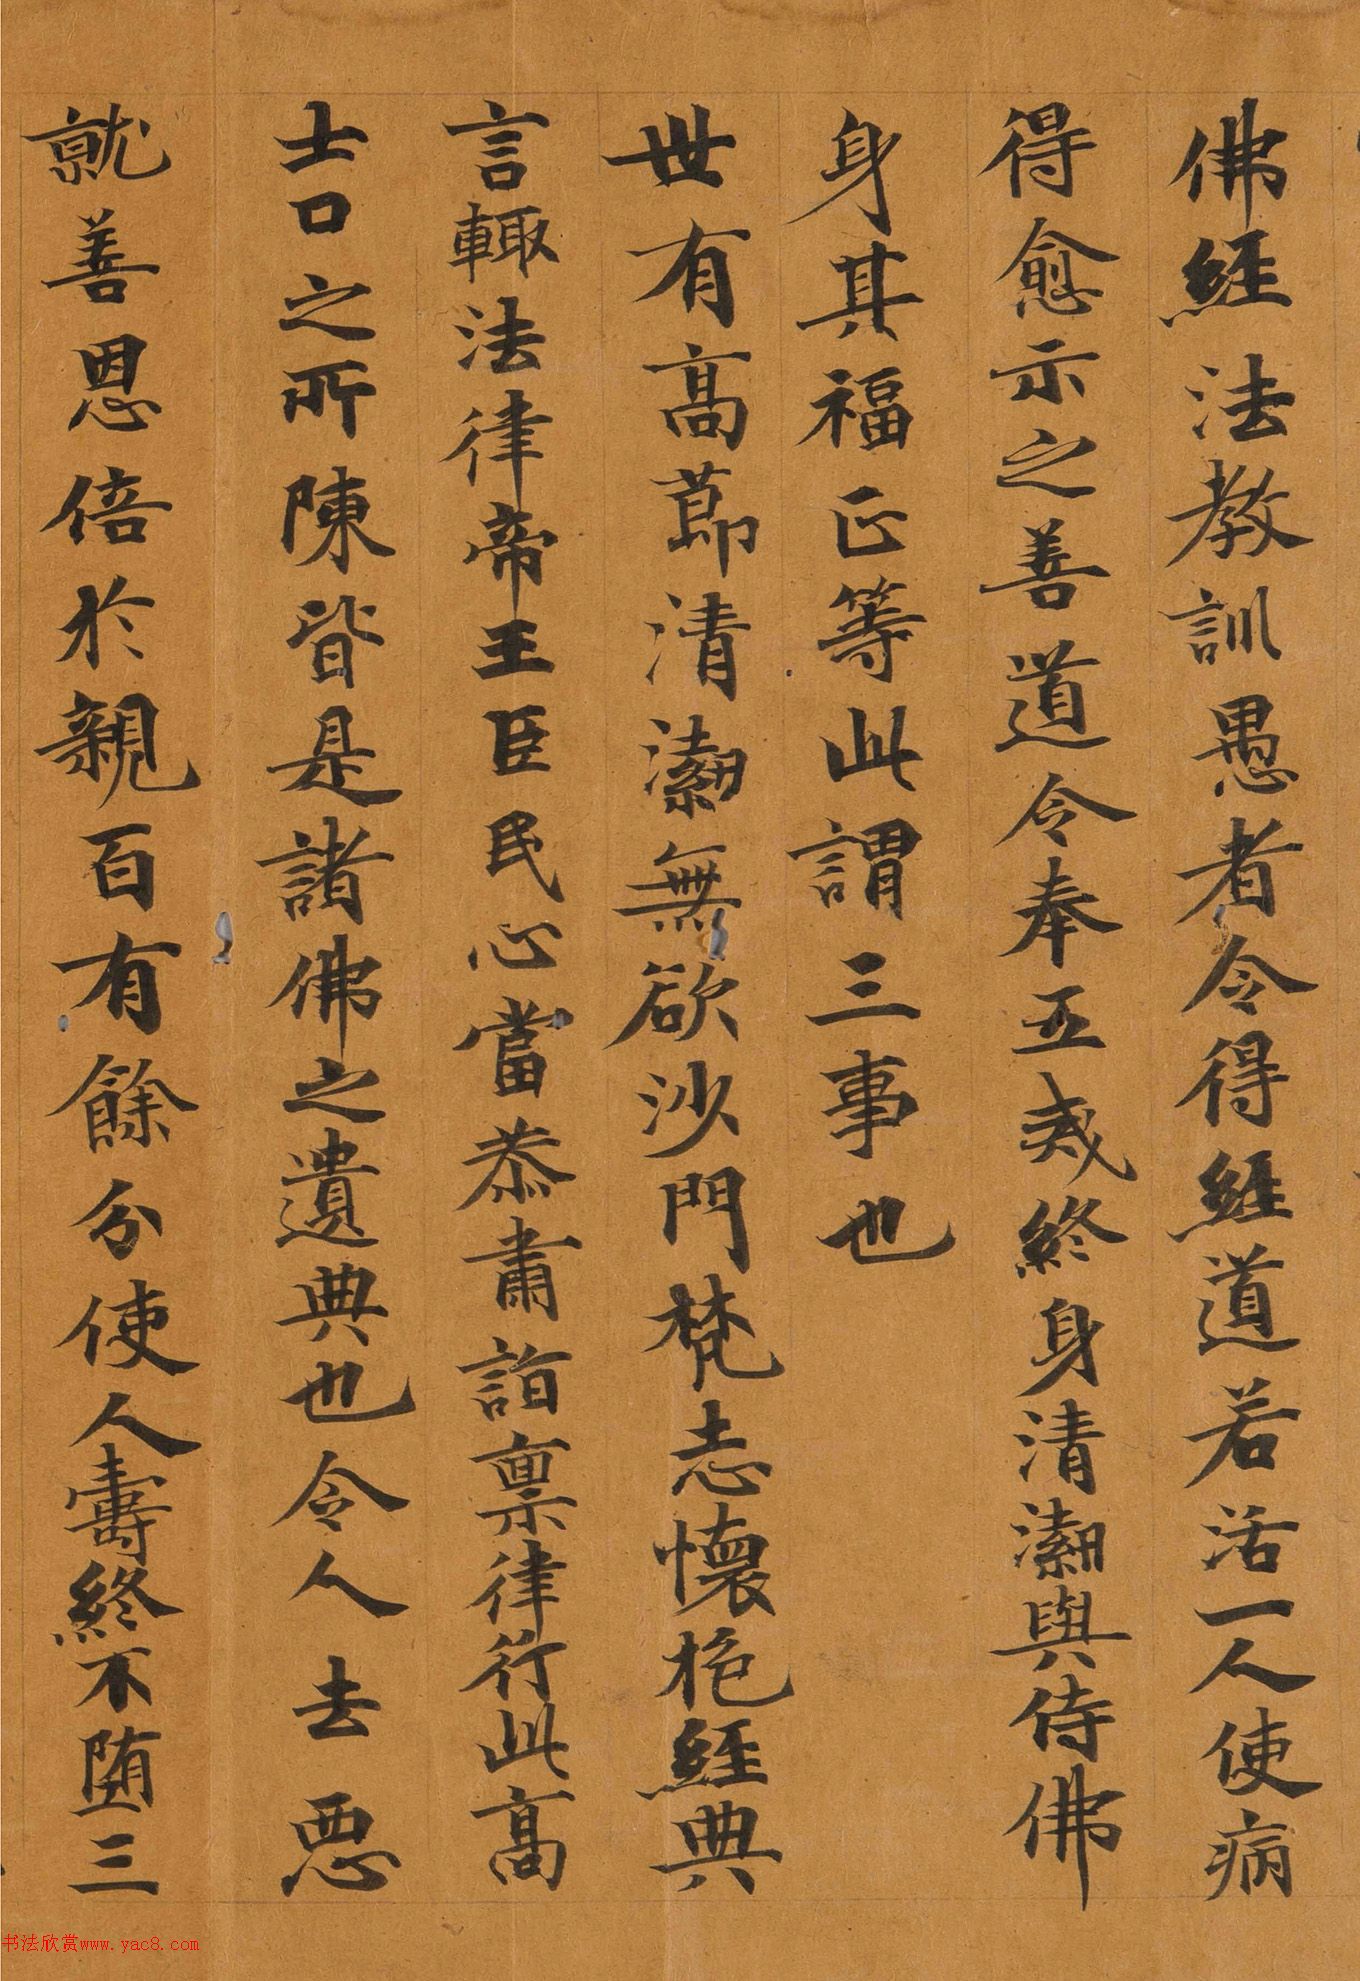 佛經法教訓愚者令得經道若活一人使病
得愈示之善道令奉五戒終身清潔與侍佛
身其福正等此謂三事也
世有高節清潔無欲沙門梵志懷抱經典
言輒法律帝王臣民心當恭肅諮稟律行此高
士口之所陳皆是諸佛之遺典也令人去惡
就善恩倍於親百有餘分使人壽終不墮三
书法欣赏www.yac8.com